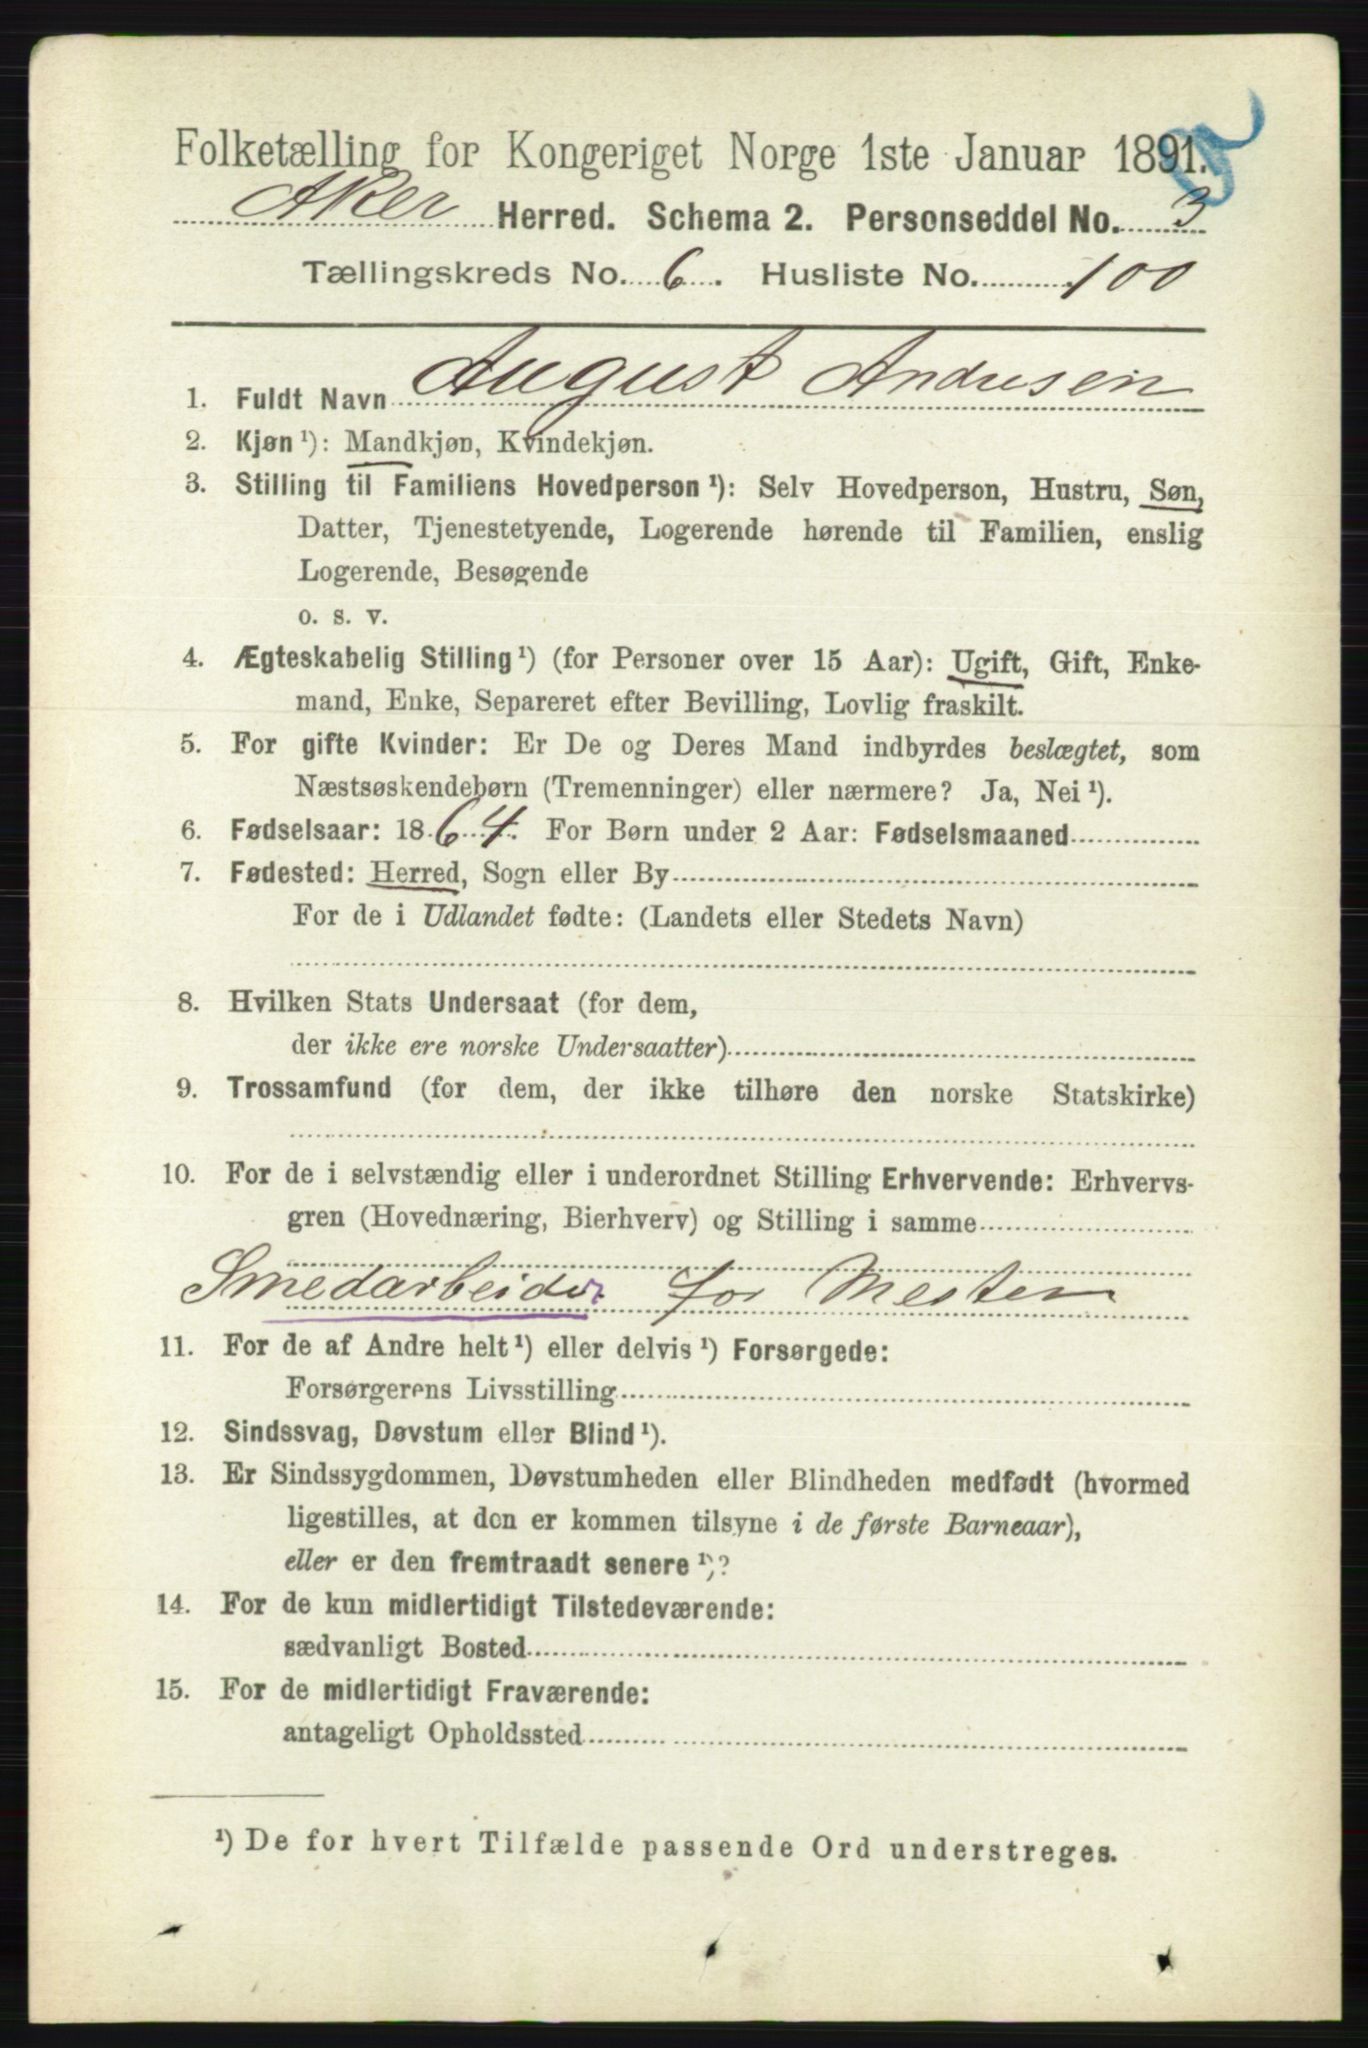 Folketælling for Kongeriget Norge 1ste Januar 1891.
Aker Herred. Schema 2. Personseddel No. 3
Tællingskreds No. 6. Husliste No. 100
1. Fuldt Navn August Andresen
2. Kjøn ¹): Mandkjøn, Kvindekjøn.
3. Stilling til Familiens Hovedperson ¹): Selv Hovedperson, Hustru, Søn,
Datter, Tjenestetyende, Logerende hørende til Familien, enslig
Logerende, Besøgende
o. s. v.
4. Ægteskabelig Stilling ¹) (for Personer over 15 Aar): Ugift, Gift, Enke-
mand, Enke, Separeret efter Bevilling, Lovlig fraskilt.
5. For gifte Kvinder: Er De og Deres Mand indbyrdes beslægtet, som
Næstsøskendebørn (Tremenninger) eller nærmere? Ja, Nei ¹).
6. Fødselsaar: 1864. For Børn under 2 Aar: Fødselsmaaned
7. Fødested: Herred, Sogn eller By
For de i Udlandet fødte: (Landets eller Stedets Navn)
8. Hvilken Stats Undersaat (for dem,
der ikke ere norske Undersaatter)
9. Trossamfund (for dem, der ikke tilhøre den norske Statskirke)
10. For de i selvstændig eller i underordnet Stilling Erhvervende: Erhvervs-
gren (Hovednæring, Bierhverv) og Stilling i samme
Smedarbeider for Mester
11. For de af Andre helt ¹) eller delvis ¹) Forsørgede:
Forsørgerens Livsstilling
12. Sindssvag, Døvstum eller Blind ¹).
13. Er Sindssygdommen, Døvstumheden eller Blindheden medfødt (hvormed
ligestilles, at den er kommen tilsyne i de første Barneaar),
eller er den fremtraadt senere ¹)?
14. For de kun midlertidigt Tilstedeværende:
sædvanligt Bosted
15. For de midlertidigt Fraværende:
antageligt Opholdssted
¹) De for hvert Tilfælde passende Ord understreges.